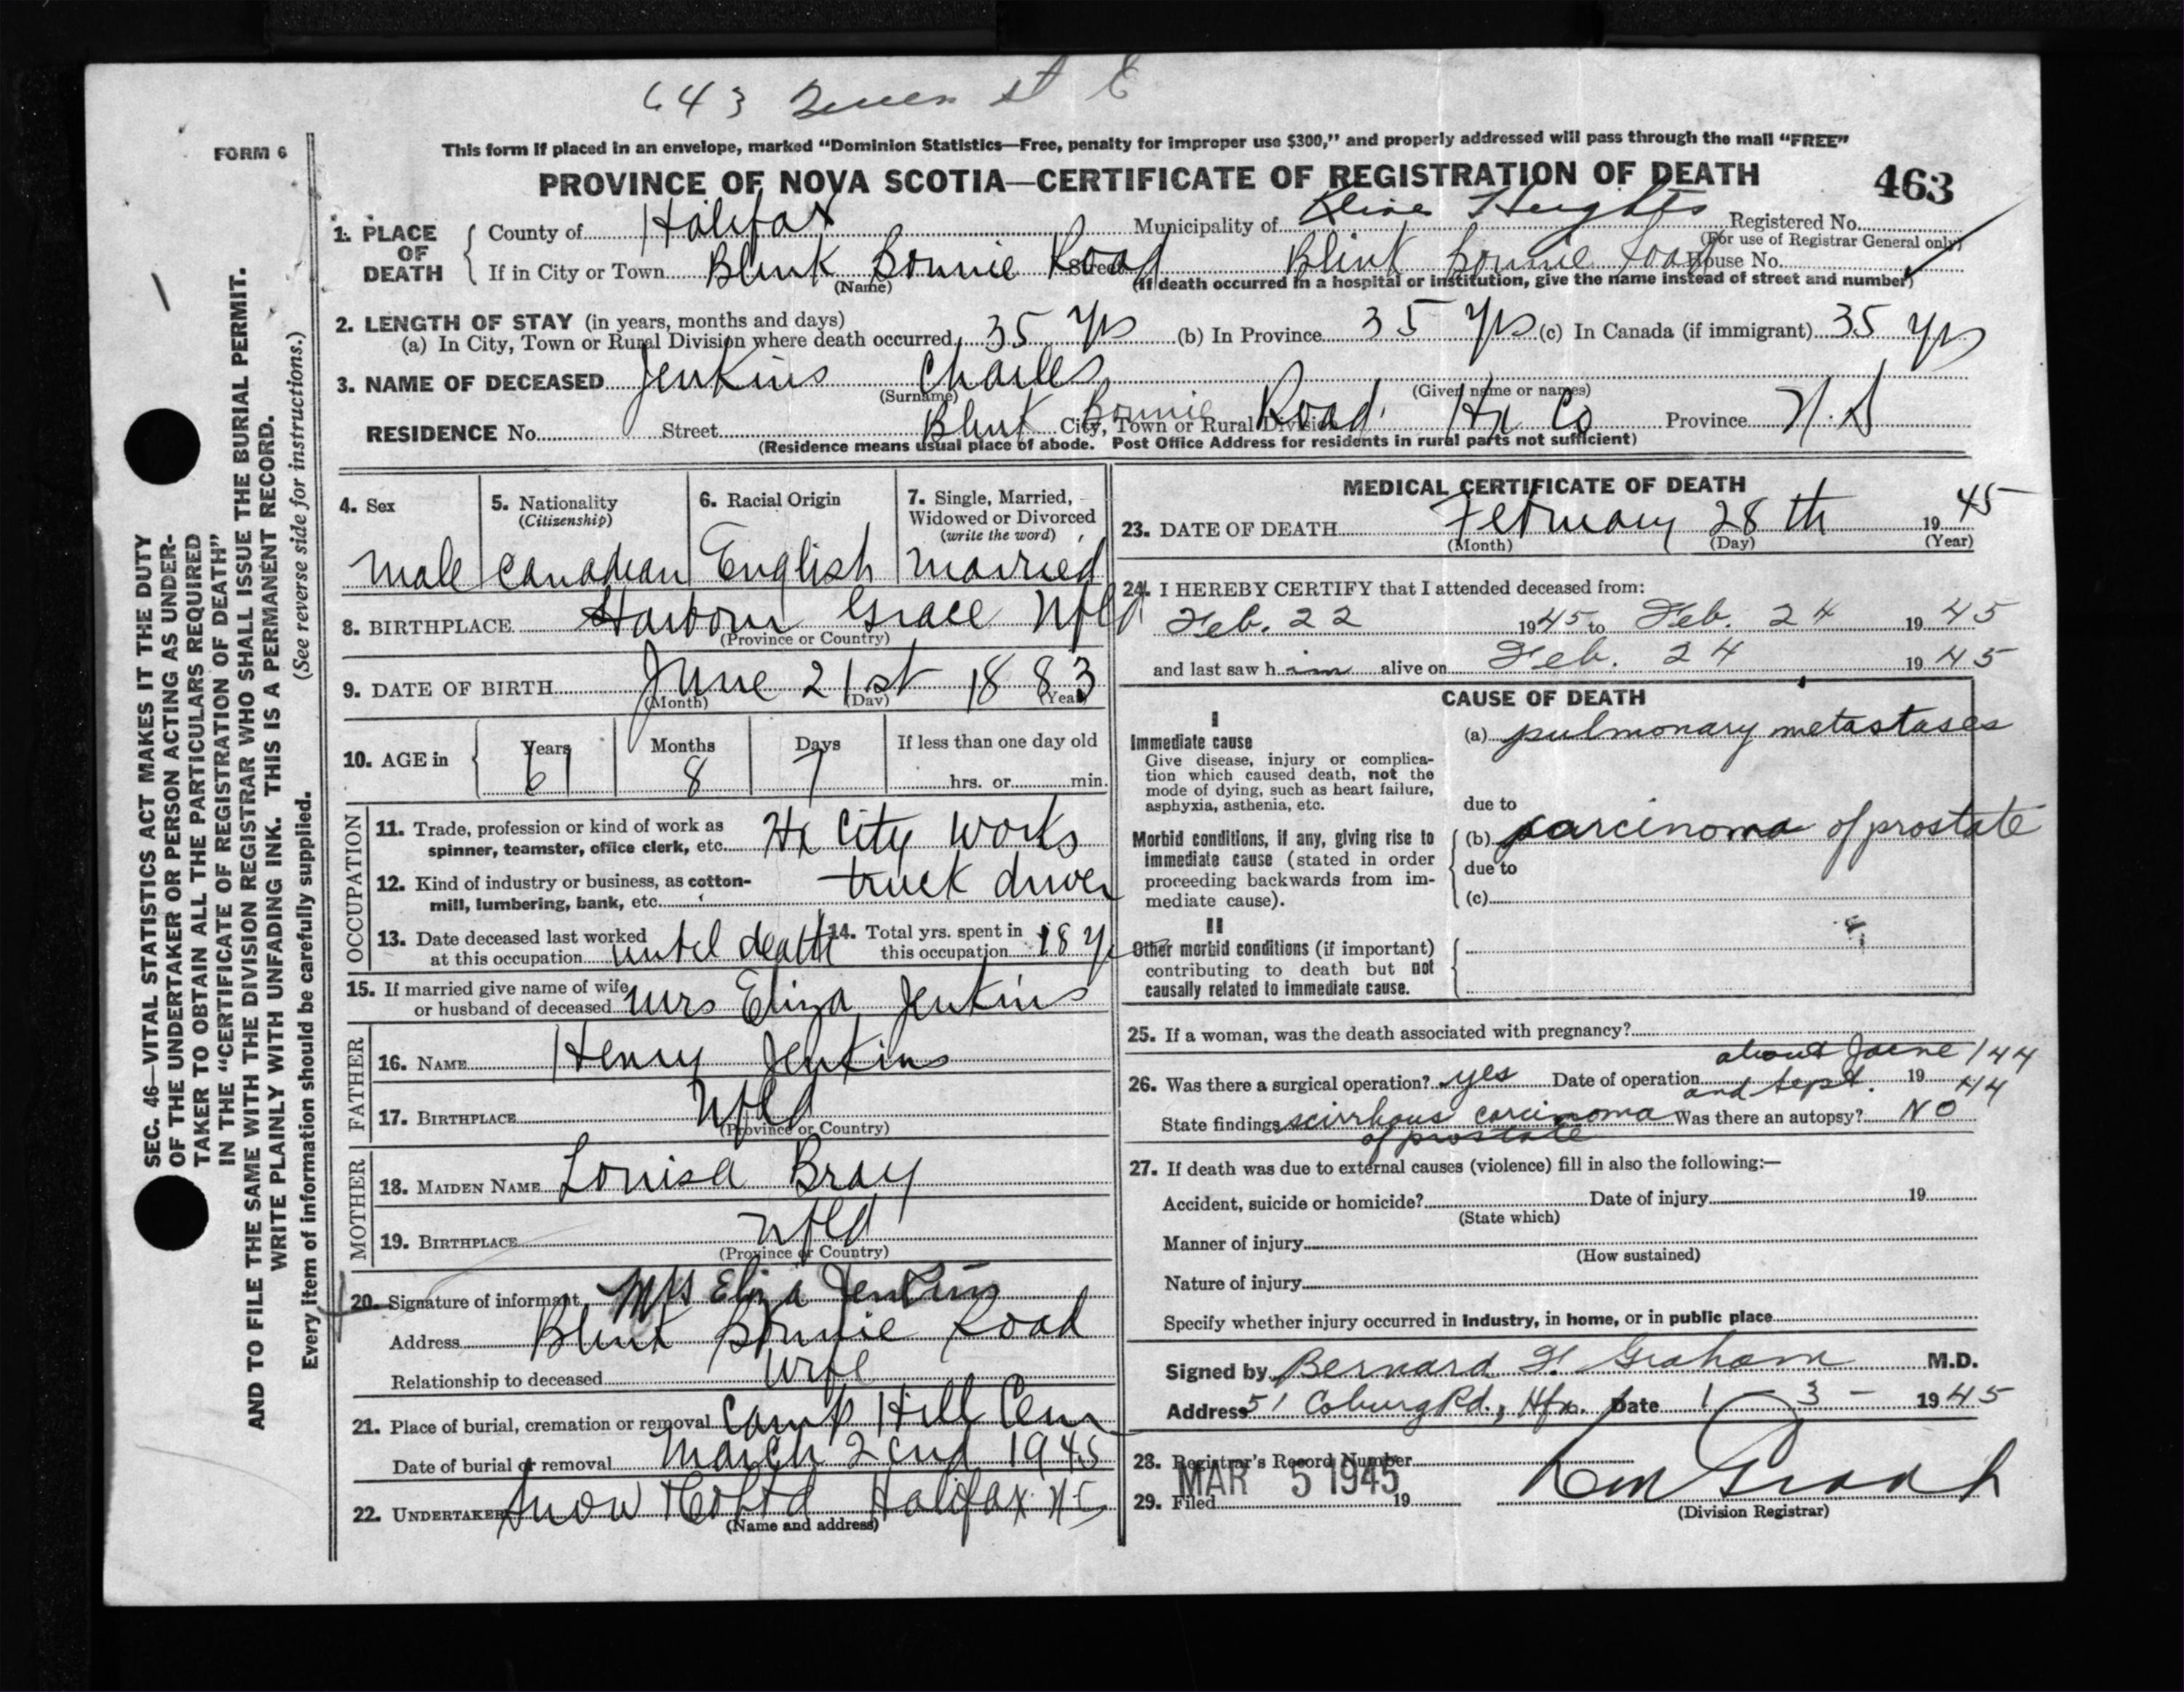 643 Queen St E
FORM 6
This form if placed in an envelope, marked "Dominion Statistics—Free, penalty for improper use $300," and properly addressed will pass through the mail "FREE"
PROVINCE OF NOVA SCOTIA—CERTIFICATE OF REGISTRATION OF DEATH 463
1. PLACE OF DEATH County of Halifax Municipality of Kline Heights Registered No.
(For use of Registrar General only)
If in City or Town Blink Bonnie Road Street Blink Bonnie Road House No.
(Name) (If death occurred in a hospital or institution, give the name instead of street and number)
2. LENGTH OF STAY (in years, months and days)
(a) In City, Town or Rural Division where death occurred 35 yrs (b) In Province 35 yrs (c) In Canada (if immigrant) 35 yrs
3. NAME OF DECEASED Jenkins Charles
(Surname) (Given name or names)
RESIDENCE No. Street Blink Bonnie Road Hx Co City, Town or Rural Division Province N.S
(Residence means usual place of abode. Post Office Address for residents in rural parts not sufficient)
4. Sex male
5. Nationality (Citizenship) Canadian
6. Racial Origin English
7. Single, Married, Widowed or Divorced (write the word) married
8. BIRTHPLACE Harbour Grace Nfld
(Province or Country)
9. DATE OF BIRTH June 21st 1883
(Month) (Day) (Year)
10. AGE in Years 61 Months 8 Days 7 If less than one day old
hrs. or min.
OCCUPATION
11. Trade, profession or kind of work as
spinner, teamster, office clerk, etc. Hx City Works
12. Kind of industry or business, as cotton-
mill, lumbering, bank, etc. truck driver
13. Date deceased last worked
at this occupation until death
14. Total yrs. spent in
this occupation 18 y
15. If married give name of wife
or husband of deceased Mrs Eliza Jenkins
FATHER
16. NAME Henry Jenkins
17. BIRTHPLACE Nfld
(Province or Country)
MOTHER
18. MAIDEN NAME Louisa Bray
19. BIRTHPLACE Nfld
(Province or Country)
20. Signature of informant Mrs Eliza Jenkins
Address Blink Bonnie Road
Relationship to deceased Wife
21. Place of burial, cremation or removal Camp Hill Cem
Date of burial or removal March 2cnd 1945
22. UNDERTAKER Snow & Co Ltd Halifax N S
(Name and address)
MEDICAL CERTIFICATE OF DEATH
23. DATE OF DEATH February 28th 1945
(Month) (Day) (Year)
24. I HEREBY CERTIFY that I attended deceased from:
Feb. 22 1945 to Feb. 24 1945
and last saw him alive on Feb. 24 1945
CAUSE OF DEATH
I
Immediate cause
Give disease, injury or complica-
tion which caused death, not the
mode of dying, such as heart failure,
asphyxia, asthenia, etc.
(a) pulmonary metastases
due to
Morbid conditions, if any, giving rise to
immediate cause (stated in order
proceeding backwards from im-
mediate cause).
(b) carcinoma of prostate
due to
(c)
II
Other morbid conditions (if important)
contributing to death but not
causally related to immediate cause.
25. If a woman, was the death associated with pregnancy?
26. Was there a surgical operation? yes Date of operation about June 1944 and Sept. 1944
State findings scirrhous carcinoma of prostate Was there an autopsy? NO
27. If death was due to external causes (violence) fill in also the following:—
Accident, suicide or homicide? Date of injury 19
(State which)
Manner of injury
(How sustained)
Nature of injury
Specify whether injury occurred in Industry, in home, or in public place
Signed by Bernard F. Graham M.D.
Address 51 Coburg Rd., Hfx. Date 1 - 3 - 1945
28. Registrar's Record Number
29. Filed MAR 5 1945 19
(Division Registrar)
SEC. 46—VITAL STATISTICS ACT MAKES IT THE DUTY
OF THE UNDERTAKER OR PERSON ACTING AS UNDER-
TAKER TO OBTAIN ALL THE PARTICULARS REQUIRED
IN THE "CERTIFICATE OF REGISTRATION OF DEATH"
AND TO FILE THE SAME WITH THE DIVISION REGISTRAR WHO SHALL ISSUE THE BURIAL PERMIT.
WRITE PLAINLY WITH UNFADING INK. THIS IS A PERMANENT RECORD.
Every item of information should be carefully supplied. (See reverse side for instructions.)